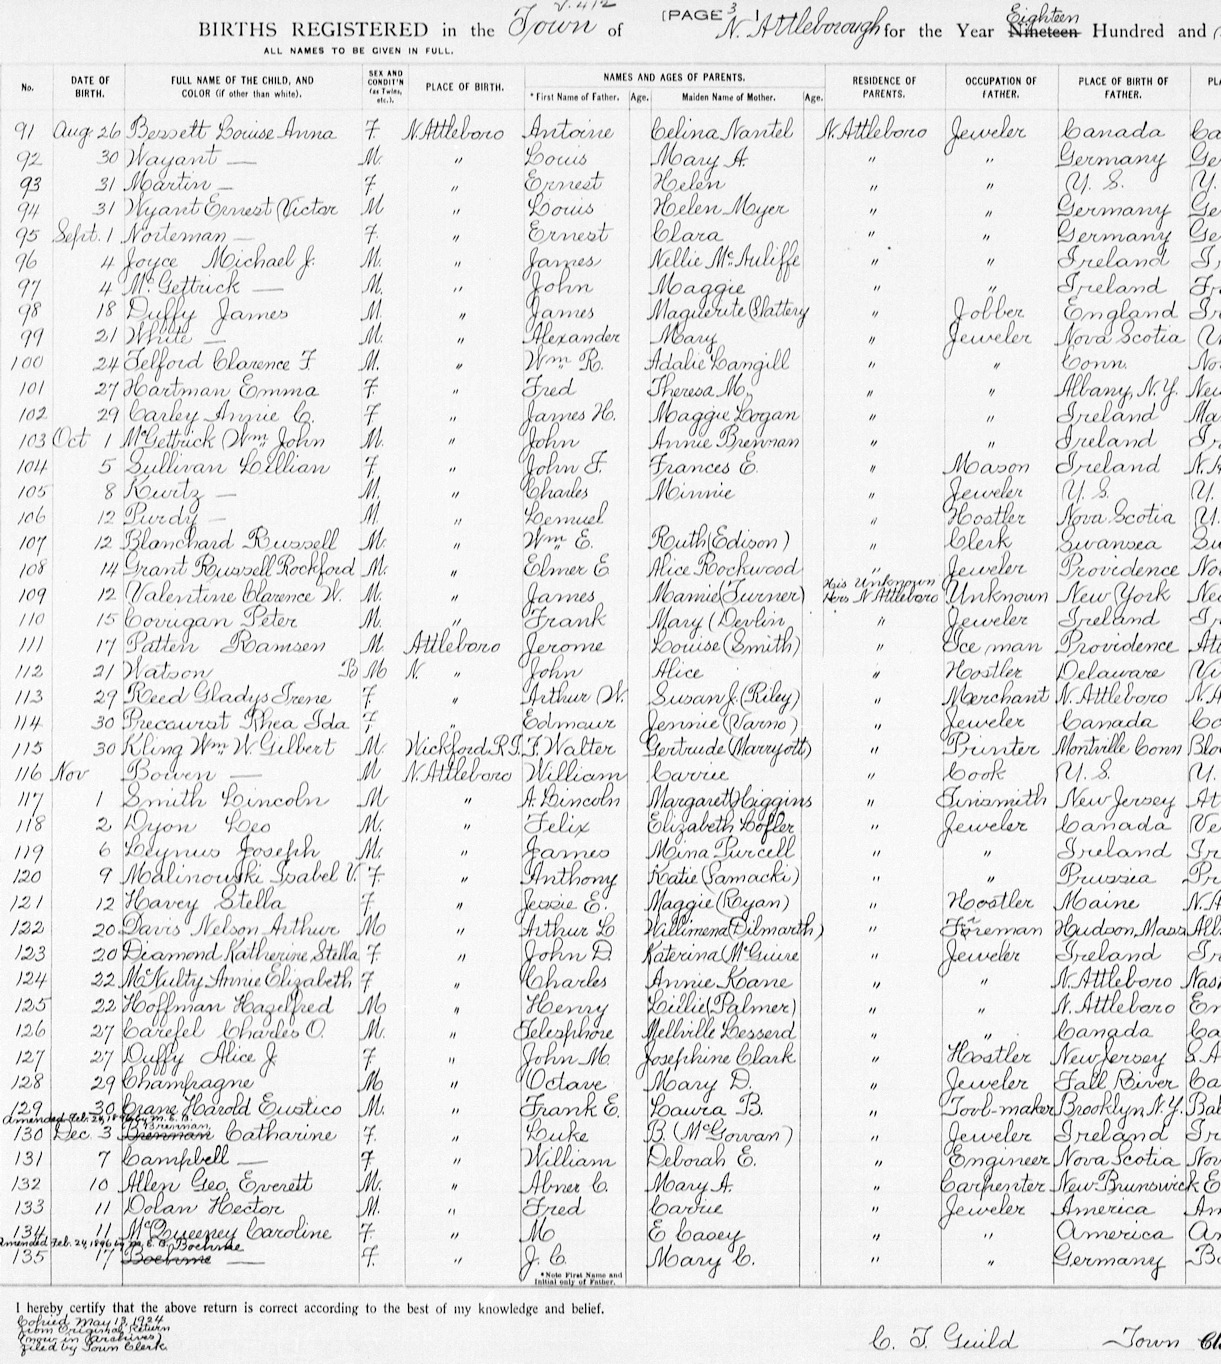 v. 412
[PAGE 3 ]
BIRTHS REGISTERED in the Town of N. Attleborough for the Year Eighteen Nineteen Hundred and
ALL NAMES TO BE GIVEN IN FULL.
No. DATE OF BIRTH. FULL NAME OF THE CHILD, AND COLOR (if other than white). SEX AND CONDIT'N (as Twins, etc.). PLACE OF BIRTH. NAMES AND AGES OF PARENTS. *First Name of Father. Age. Maiden Name of Mother. Age. RESIDENCE OF PARENTS. OCCUPATION OF FATHER. PLACE OF BIRTH OF FATHER.
91 Aug 26 Bessett Louise Anna F. N. Attleboro Antoine Celina Nantel N. Attleboro Jeweler Canada Ca
92 30 Wayant — M. " Louis Mary A. " " Germany Ge
93 31 Martin — F " Ernest Helen " " U. S. U.
94 31 Wyant Ernest Victor M " Louis Helen Myer " " Germany Ge
95 Sept. 1 Norteman — F. " Ernest Clara " " Germany Ge
96 4 Joyce Michael J. M. " James Nellie McAuliffe " " Ireland Ir
97 4 McGettrick — M. " John Maggie " " Ireland
98 18 Duffy James M. " James Maguerite (Slattery " Jobber England
99 21 White — M. " Alexander Mary " Jeweler Nova Scotia
100 24 Telford Clarence F M. " Wm R. Adalie Langill " " Conn. No
101 27 Hartman Emma F. " Fred Theresa M. " " Albany, N.Y. New
102 29 Carley Annie C. F " James H. Maggie Logan " " Ireland Ma
103 Oct 1 McGettrick (Wm John M. " John Annie Brennan " " Ireland
104 5 Sullivan Lillian F. " John F. Frances E. " Mason Ireland N. A
105 8 Kurtz — M. " Charles Minnie " Jeweler U. S. U.
106 12 Purdy — M. " Lemuel " Hostler Nova Scotia U.
107 12 Blanchard Russell M. " Wm E. Ruth (Edison) " Clerk Swansea
108 14 Grant Russell Rockford M. " Elmer E Alice Rockwood " Jeweler Providence No
109 12 Valentine Clarence W. M. " James Mamie (Turner) His Unknown Hers N Attleboro Unknown New York
110 15 Corrigan Peter M. " Frank Mary (Devlin " Jeweler Ireland
111 17 Patten Ramsen M Attleboro Jerome Louise (Smith) " Ice man Providence
112 21 Watson B M N. " John Alice " Hostler Delaware
113 29 Reed Gladys Irene F. " Arthur W. Susan J. (Riley) " Merchant N. Attleboro
114 30 Precourst Rhea Ida F " Edmaur Jennie (Varno) " Jeweler Canada
115 30 Kling Wm W Gilbert M. Wickford R.I. F. Walter Gertrude (Marryott) " Printer Montville Conn
116 Nov Bowen — M N. Attleboro William Carrie " Cook U. S. U.
117 1 Smith Lincoln M " A. Lincoln Margaret Higgins " Tinsmith New Jersey At
118 2 Dyon Leo M. " Felix Elizabeth Lofler " Jeweler Canada Ve
119 6 Leynus Joseph M. " James Mina Purcell " " Ireland
120 9 Malinowski Isabel V. F. " Anthony Katie (Samacki) " " Prussia Pr
121 12 Havey Stella F. " Jessie E. Maggie (Ryan) " Hostler Maine N. A
122 20 Davis Nelson Arthur M " Arthur L Willimena (Dilmarth) " Foreman Hudson, Mass
123 20 Diamond Katherine Stella F " John D. Katerina (McGuire " Jeweler Ireland
124 22 McNulty Annie Elizabeth F " Charles Annie Kane " " N. Attleboro
125 22 Hoffman Hazelfred M " Henry Lillie (Palmer) " " N. Attleboro En
126 27 Carefel Charles O. M. " Telesphore Mellville Lesserd " " Canada Ca
127 27 Duffy Alice J F " John M. Josephine Clark " Hostler New Jersey
128 29 Champagne M " Octave Mary D. " Jeweler Fall River Ca
129 30 Crane Harold Eustico M. " Frank E. Laura B. " Tool-maker Brooklyn N.Y.
Amended Feb. 24, 1896 by M. E. B.
Brennan
130 Dec. 3 Brennan Catharine F. " Luke B. (McGowan) " Jeweler Ireland
131 7 Campbell — F " William Deborah E. " Engineer Nova Scotia Nov
132 10 Allen Geo. Everett M. " Abner C. Mary A. " Carpenter New Brunswick
133 11 Dolan Hector M. " Fred Carrie " Jeweler America
134 11 McQueeney Caroline F. " M E Casey " " America
Amended Feb. 24, 1896 by M. E. B. Boehme
135 17 Boehme — F. " J. C. Mary C. " " Germany
*Note First Name and Initial only of Father.
I hereby certify that the above return is correct according to the best of my knowledge and belief.
Copied May 13, 1924
from Original Return
(now in Archives)
filed by Town Clerk.
C. T. Guild Town Cle